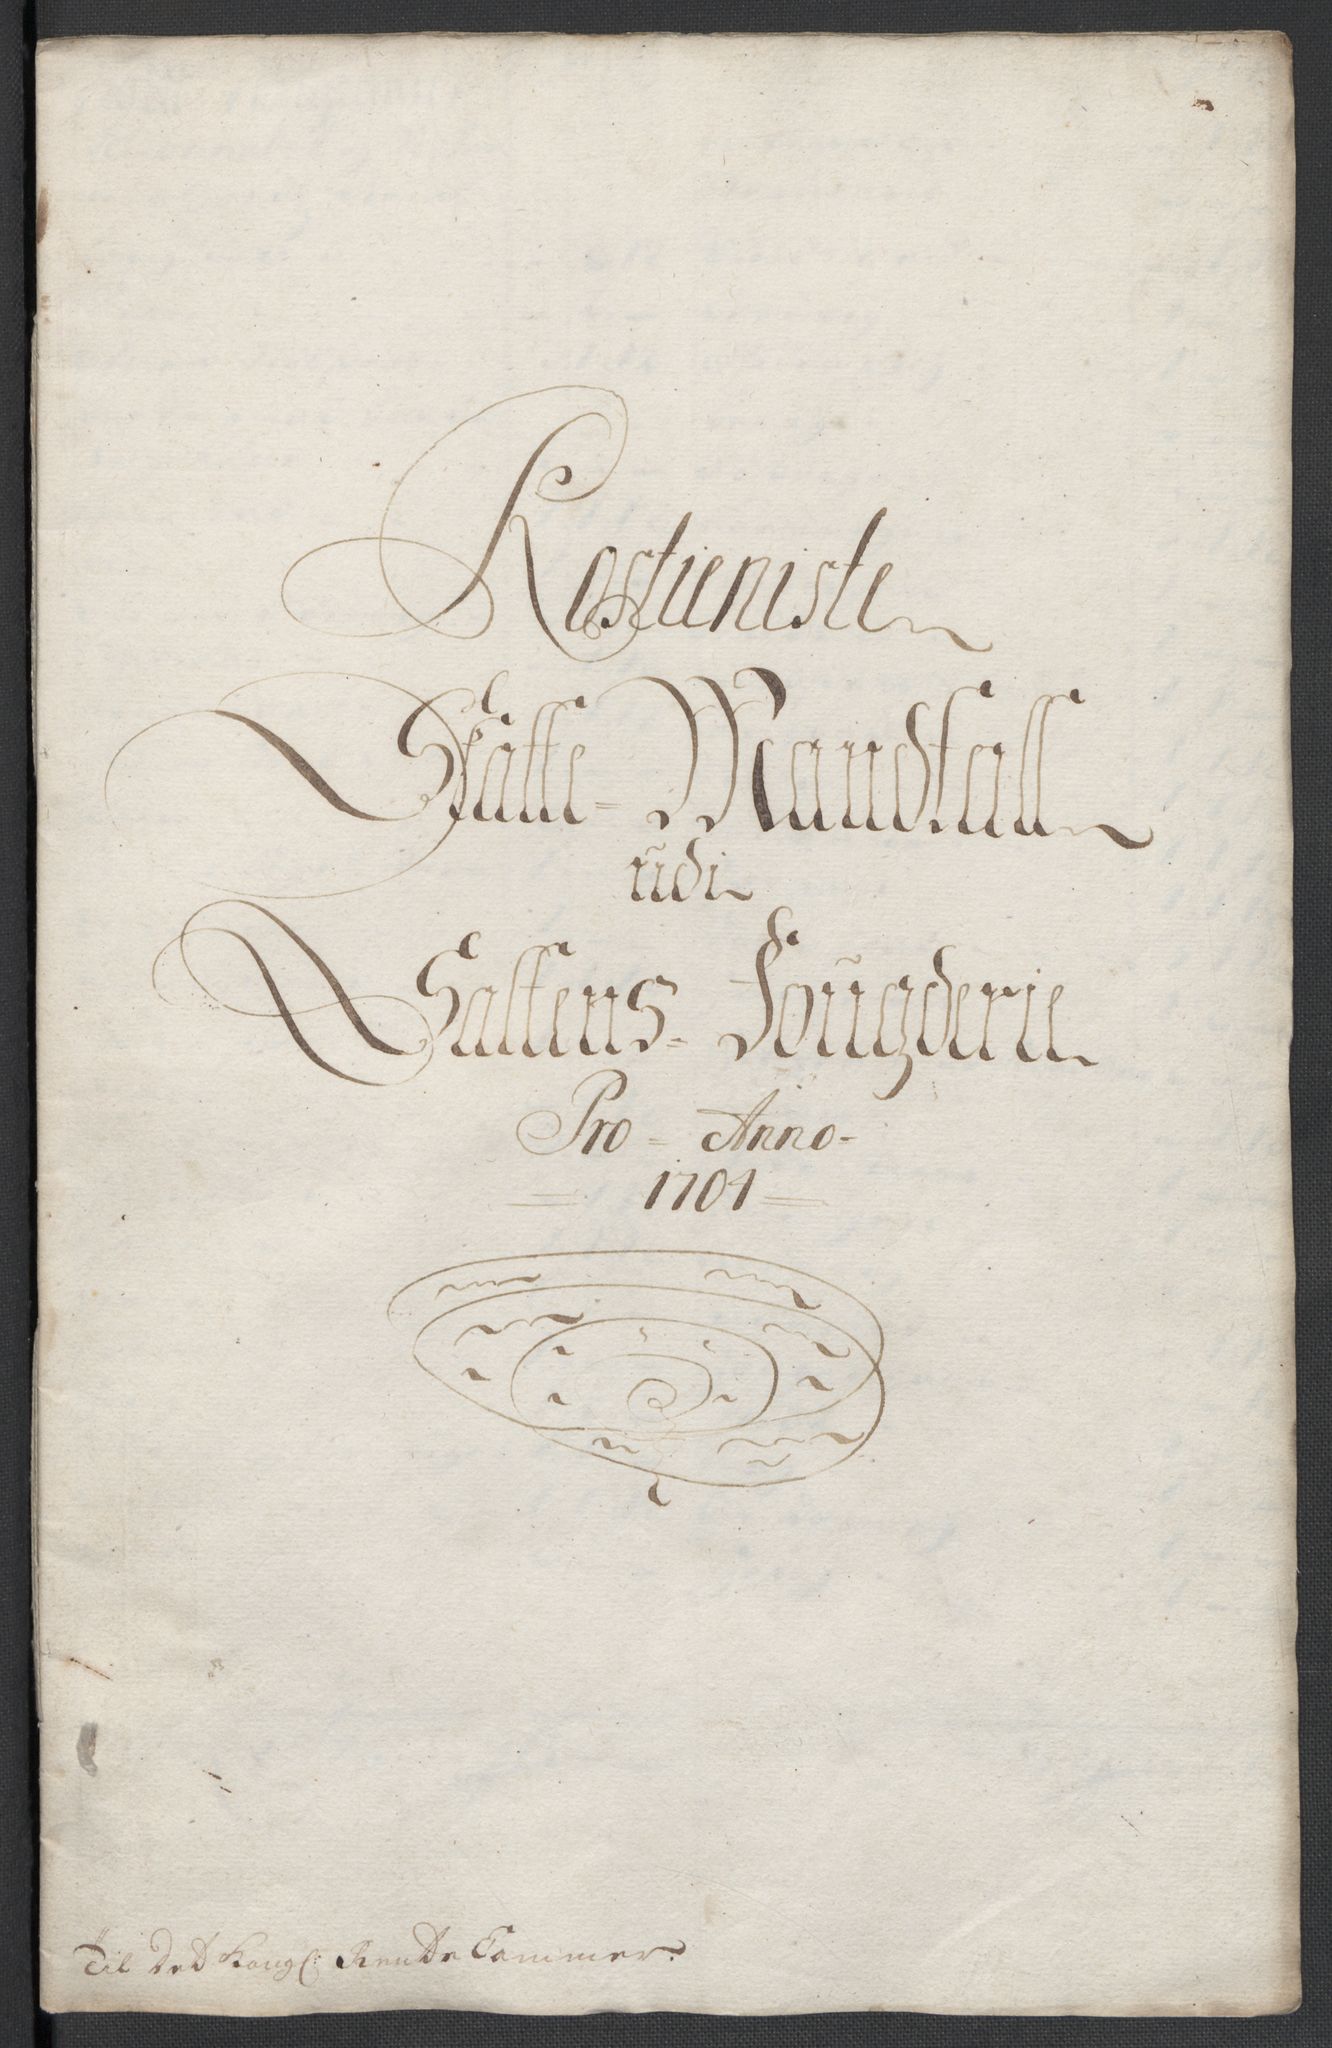 Rostieniste
Skatte- Mandtall
udi
Saltens- Fougderie
Pro- Anno-
1701
Til Det Kongl: Rendte Cammer.